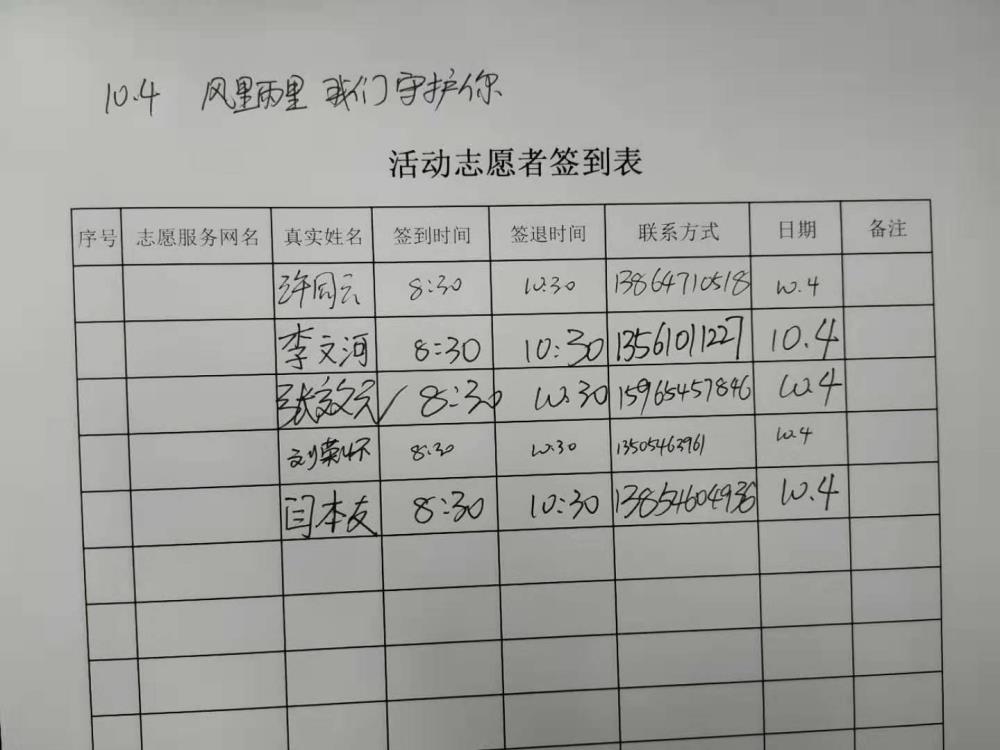 10.4 风里雨里 我们守护你
活动志愿者签到表
序号 志愿服务网名 真实姓名 签到时间 签退时间 联系方式 日期 备注
许同云 8:30 10:30 13864710518 10.4
李文河 8:30 10:30 13561011227 10.4
张效元 8:30 10:30 15965457846 10.4
刘荣怀 8:30 10:30 13505463961 10.4
闫本友 8:30 10:30 13854604936 10.4